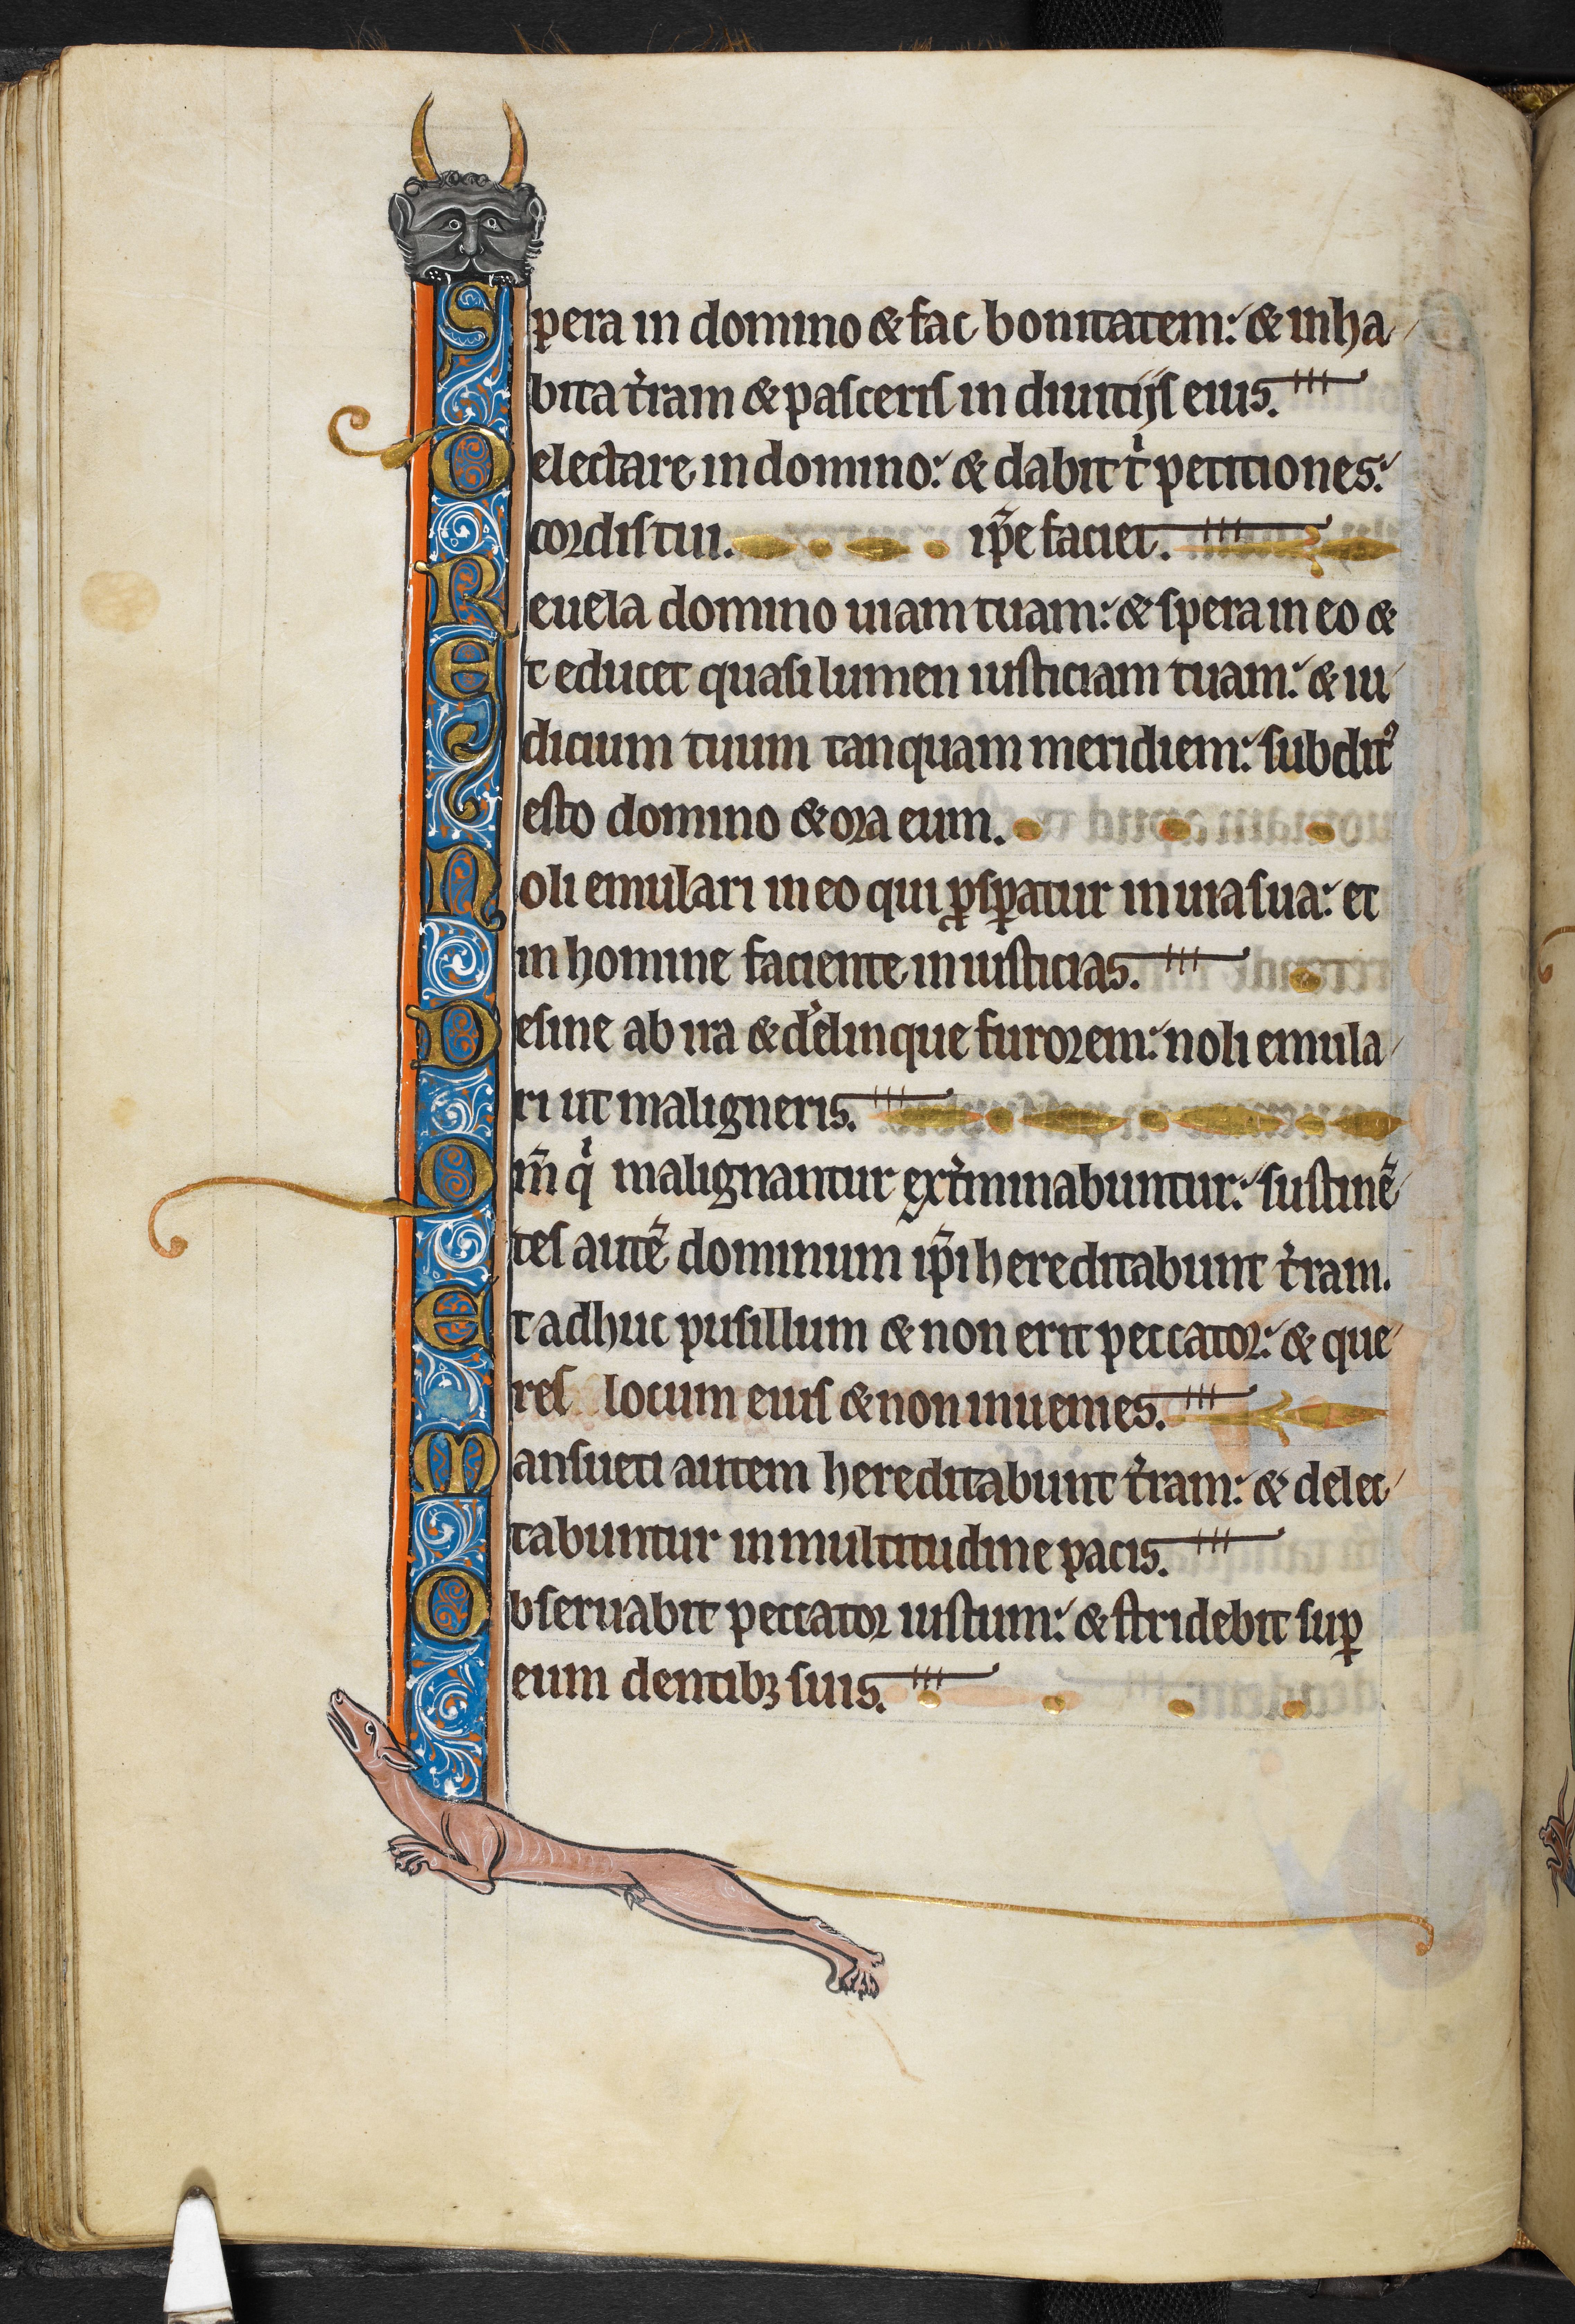 Spera in domino & fac bonitatem: & inha
bita t̾ram & pasceris in diuitijs eius.
Delectare in domino: & dabit t̾ petitiones
cordis tui. ip̄e faciet.
Reuela domino uiam tuam: & spera in eo &
Et educet quasi lumen iusticiam tuam: & iu
dicium tuum tanquam meridiem: subditꝰ
esto domino & ora eum.
Noli emulari in eo qui ꝓspatur in uia sua: et
in homine faciente iniusticias.
Desine ab ira & d̾elinque furorem: noli emula
ri ut maligneris.
Om̄ q̾ malignantur ext̾minabuntur: sustinē
tes autē dominum ip̄i hereditabunt t̾ram.
Et adhuc pusillum & non erit peccator: & que
res locum eius & non inuenies.
Mansueti autem hereditabunt t̾ram: & delec
tabuntur in multitudine pacis.
Obseruabit peccator iustum: & stridebit suꝑ
eum dentibꝫ suis.